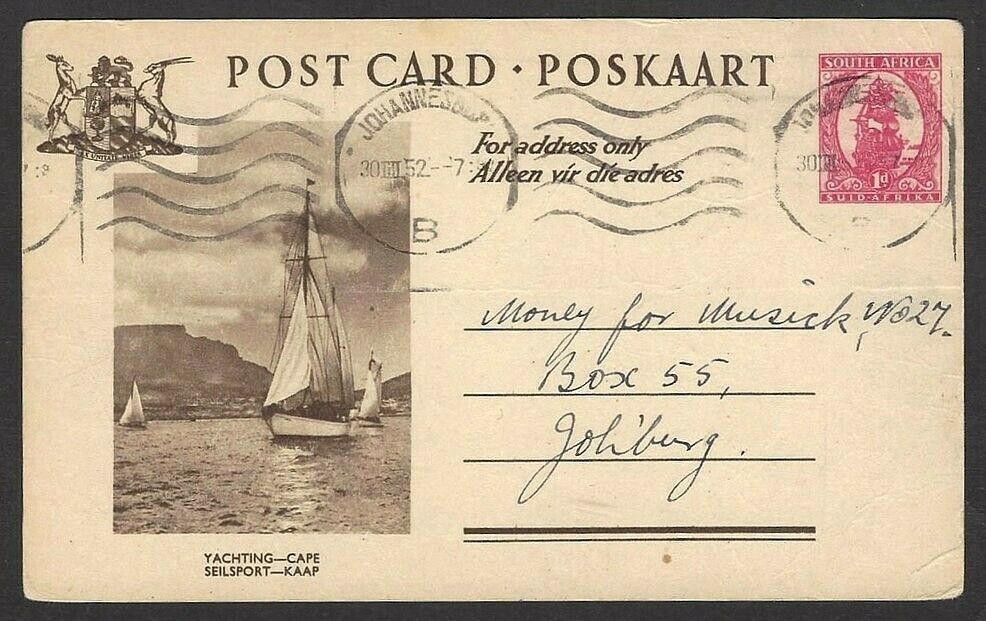 POST CARD · POSKAART
SOUTH AFRICA
1d
SUID-AFRIKA
EX UNITATE VIRES
JOHANNESBURG
30 III 52 - 7
B
For address only
Alleen vir die adres
Money for Musick, No 27.
Box 55,
Joh'burg.
YACHTING—CAPE
SEILSPORT—KAAP